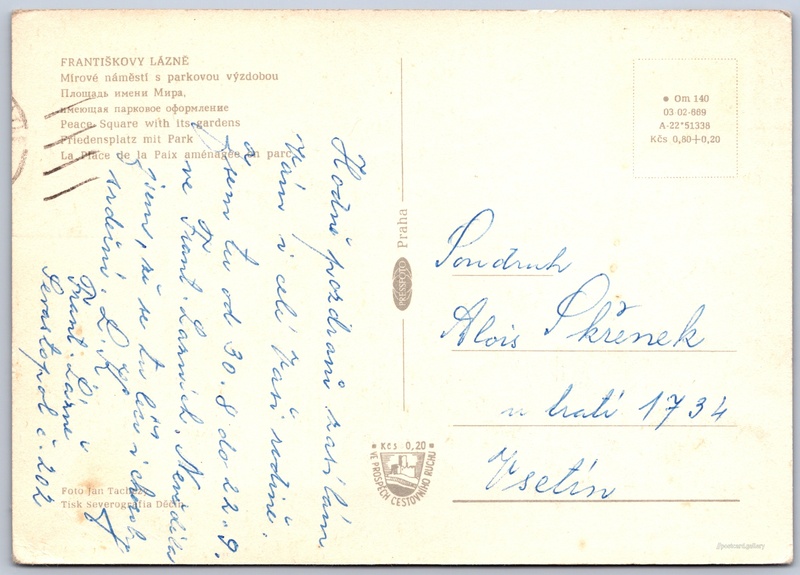 FRANTIŠKOVY LÁZNĚ
Mírové náměstí s parkovou výzdobou
Площадь имени Мира,
имеющая парковое оформление
Peace Square with its gardens
Friedensplatz mit Park
La Place de la Paix aménagée en parc
Hodně pozdravů zasílám
Vám i celé Vaší rodině.
Jsem tu od 30.8 do 22.9.
ve Frant. Lázních.
že se tu léčí
srdeční.
Frant. Lázně
Sevastopol č. 202
Foto Jan Tachezy
Tisk Severografia Děčín
Praha
PRESSFOTO
• Kčs 0,20 •
VE PROSPĚCH CESTOVNÍHO RUCHU
• Om 140
03-02-669
A-22*51336
Kčs 0,60+0,20
Soudruh
Alois Skřenek
u tratí 1734
Vsetín